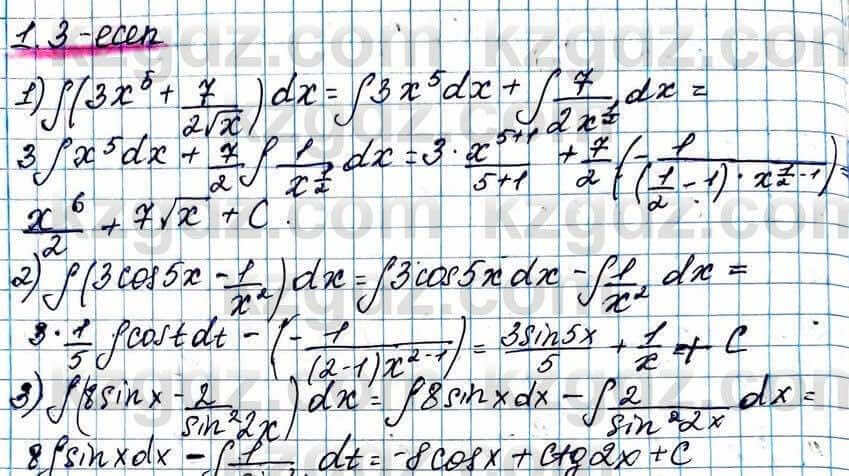 1.3-есеп
1) ∫(3x⁵ + 7/(2√x)) dx = ∫3x⁵dx + ∫ 7/(2x^(1/2)) dx =
3∫x⁵dx + 7/2 ∫ 1/x^(1/2) dx = 3 · x^(5+1)/(5+1) + 7/2 (- 1/((1/2 - 1) · x^(1/2 - 1))) =
x⁶/2 + 7√x + C.
2) ∫(3cos5x - 1/x²) dx = ∫3cos5x dx - ∫ 1/x² dx =
3 · 1/5 ∫cost dt - (- 1/((2-1)x^(2-1))) = 3sin5x/5 + 1/x + C
3) ∫(8sinx - 2/sin²2x) dx = ∫8sinx dx - ∫ 2/sin²2x dx =
8∫sinxdx - ∫ 1 dt = -8cosx + ctg2x + C